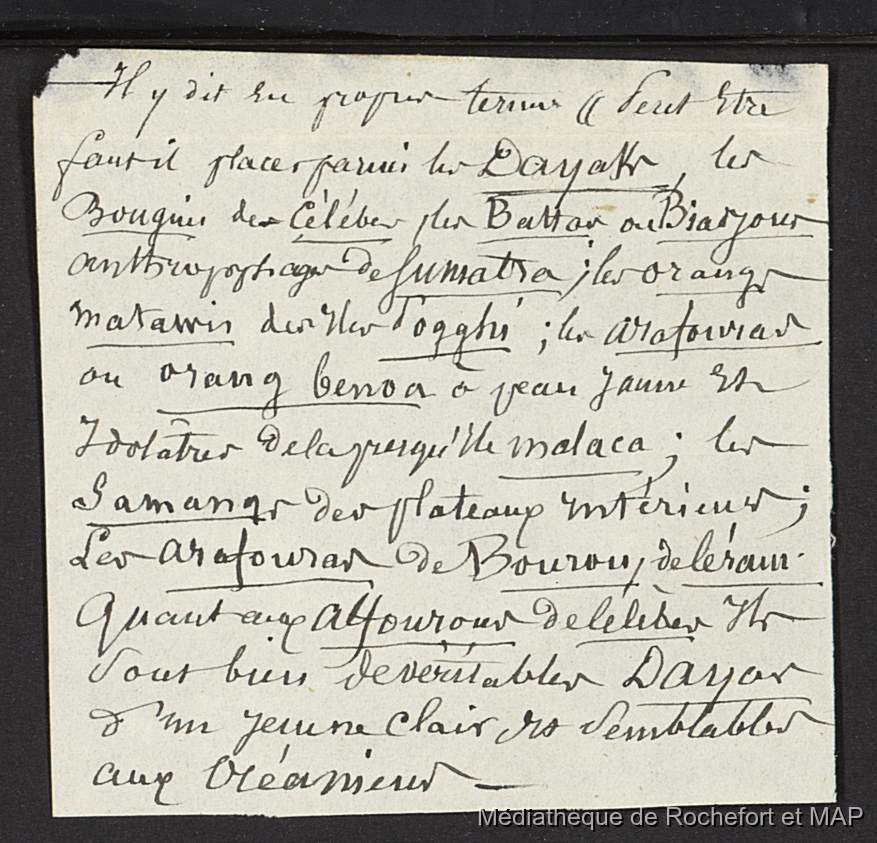 Il y dit en propres termes (( Peut Etre
faut il placer parmi les Dayaks, les
Bouguis des Célébes, les Battas ou Biadjous
anthropophages de Sumatra ; les orangs
matawis des Iles Pogghi ; les arafouras
ou orang benoa à peau jaune Et
Idolâtres de la presqu'Ile malaca ; les
Samangs des plateaux intérieurs ;
Les arafouras de Bourou, de Céram.
Quant aux alfourous de Célèbes Ils
sont bien de véritables Dayas
d'un jaune clair, et semblables
aux Océaniens —
Médiathèque de Rochefort et MAP